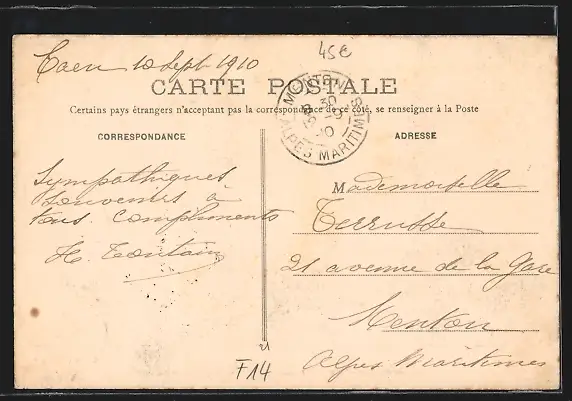 45€
Caen 10 Sept 1910
CARTE POSTALE
Certains pays étrangers n'acceptant pas la correspondance de ce côté, se renseigner à la Poste
CORRESPONDANCE
ADRESSE
MENTON
ALPES MARITIMES
Sympathiques
souvenirs à
tous. Compliments
H. Toutain
Mademoiselle
Terrusse
21 avenue de la Gare
Menton
Alpes Maritimes
21
F14